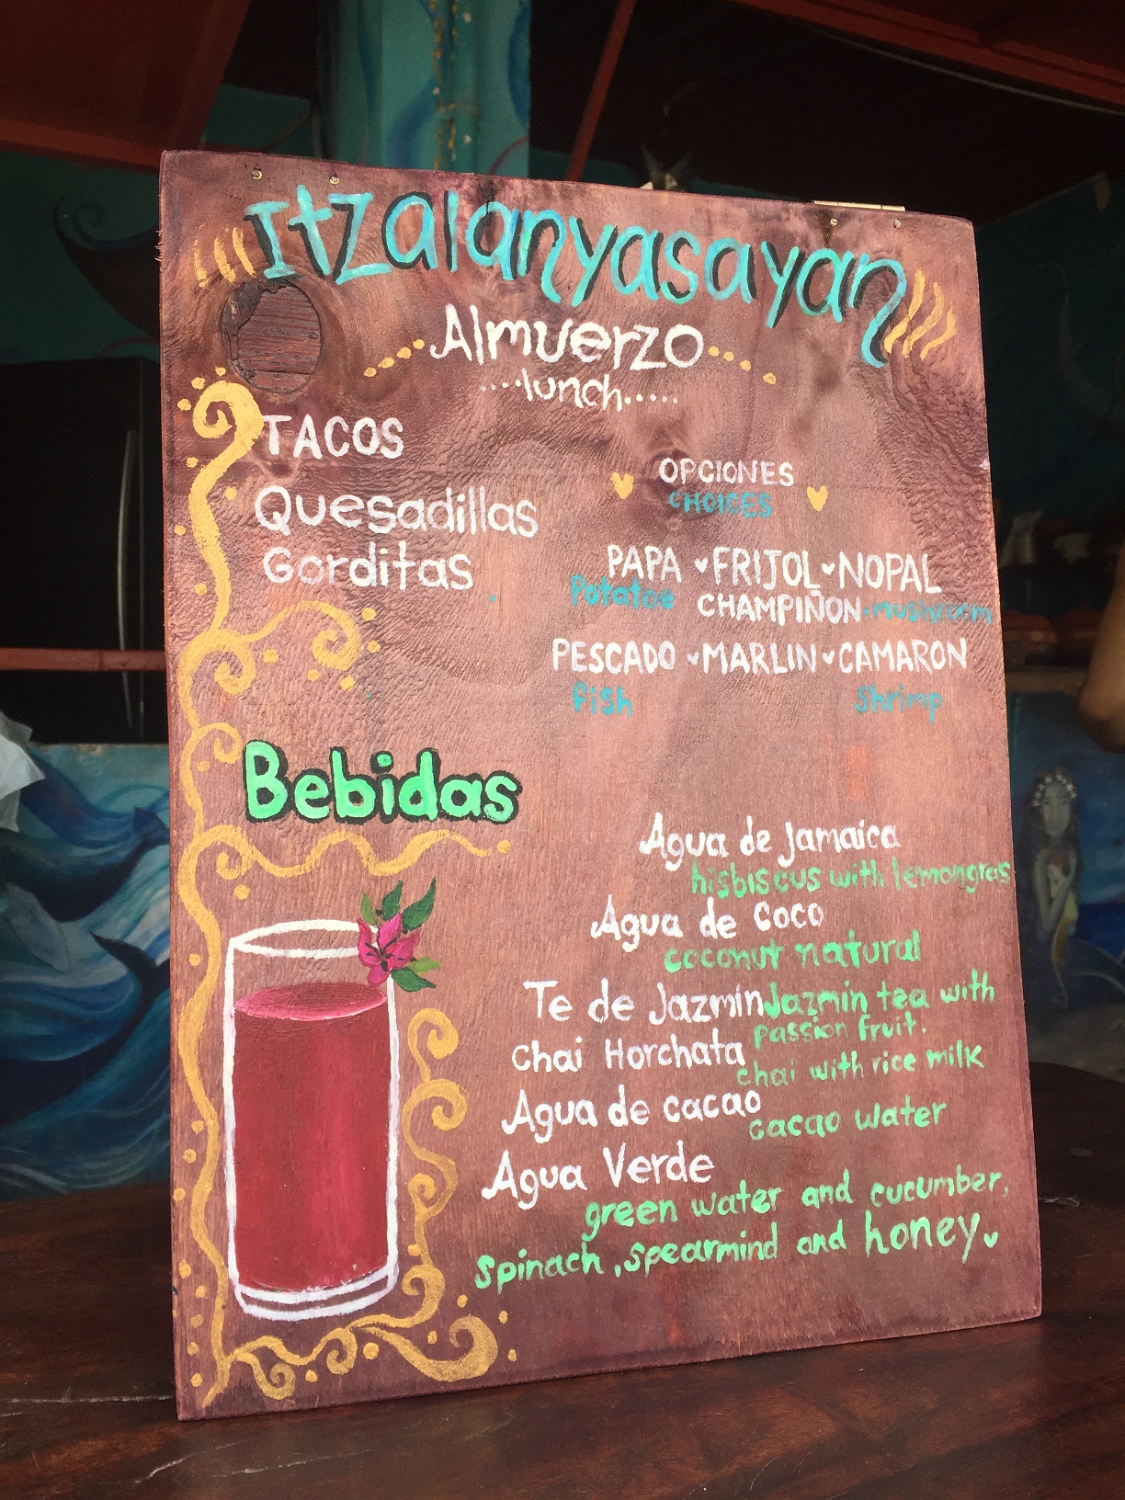 Itzalanyasayan
Almuerzo
....lunch.....
TACOS
Quesadillas
Gorditas
OPCIONES
CHOICES
PAPA FRIJOL NOPAL
Potatoe
CHAMPIÑON mushroom
PESCADO MARLIN CAMARON
fish shrimp
Bebidas
Agua de Jamaica
hisbiscus with lemongras
Agua de Coco
coconut natural
Te de Jazmín Jazmin tea with
passion fruit.
Chai Horchata
chai with rice milk
Agua de cacao
cacao water
Agua Verde
green water and cucumber,
spinach, spearmind and honey